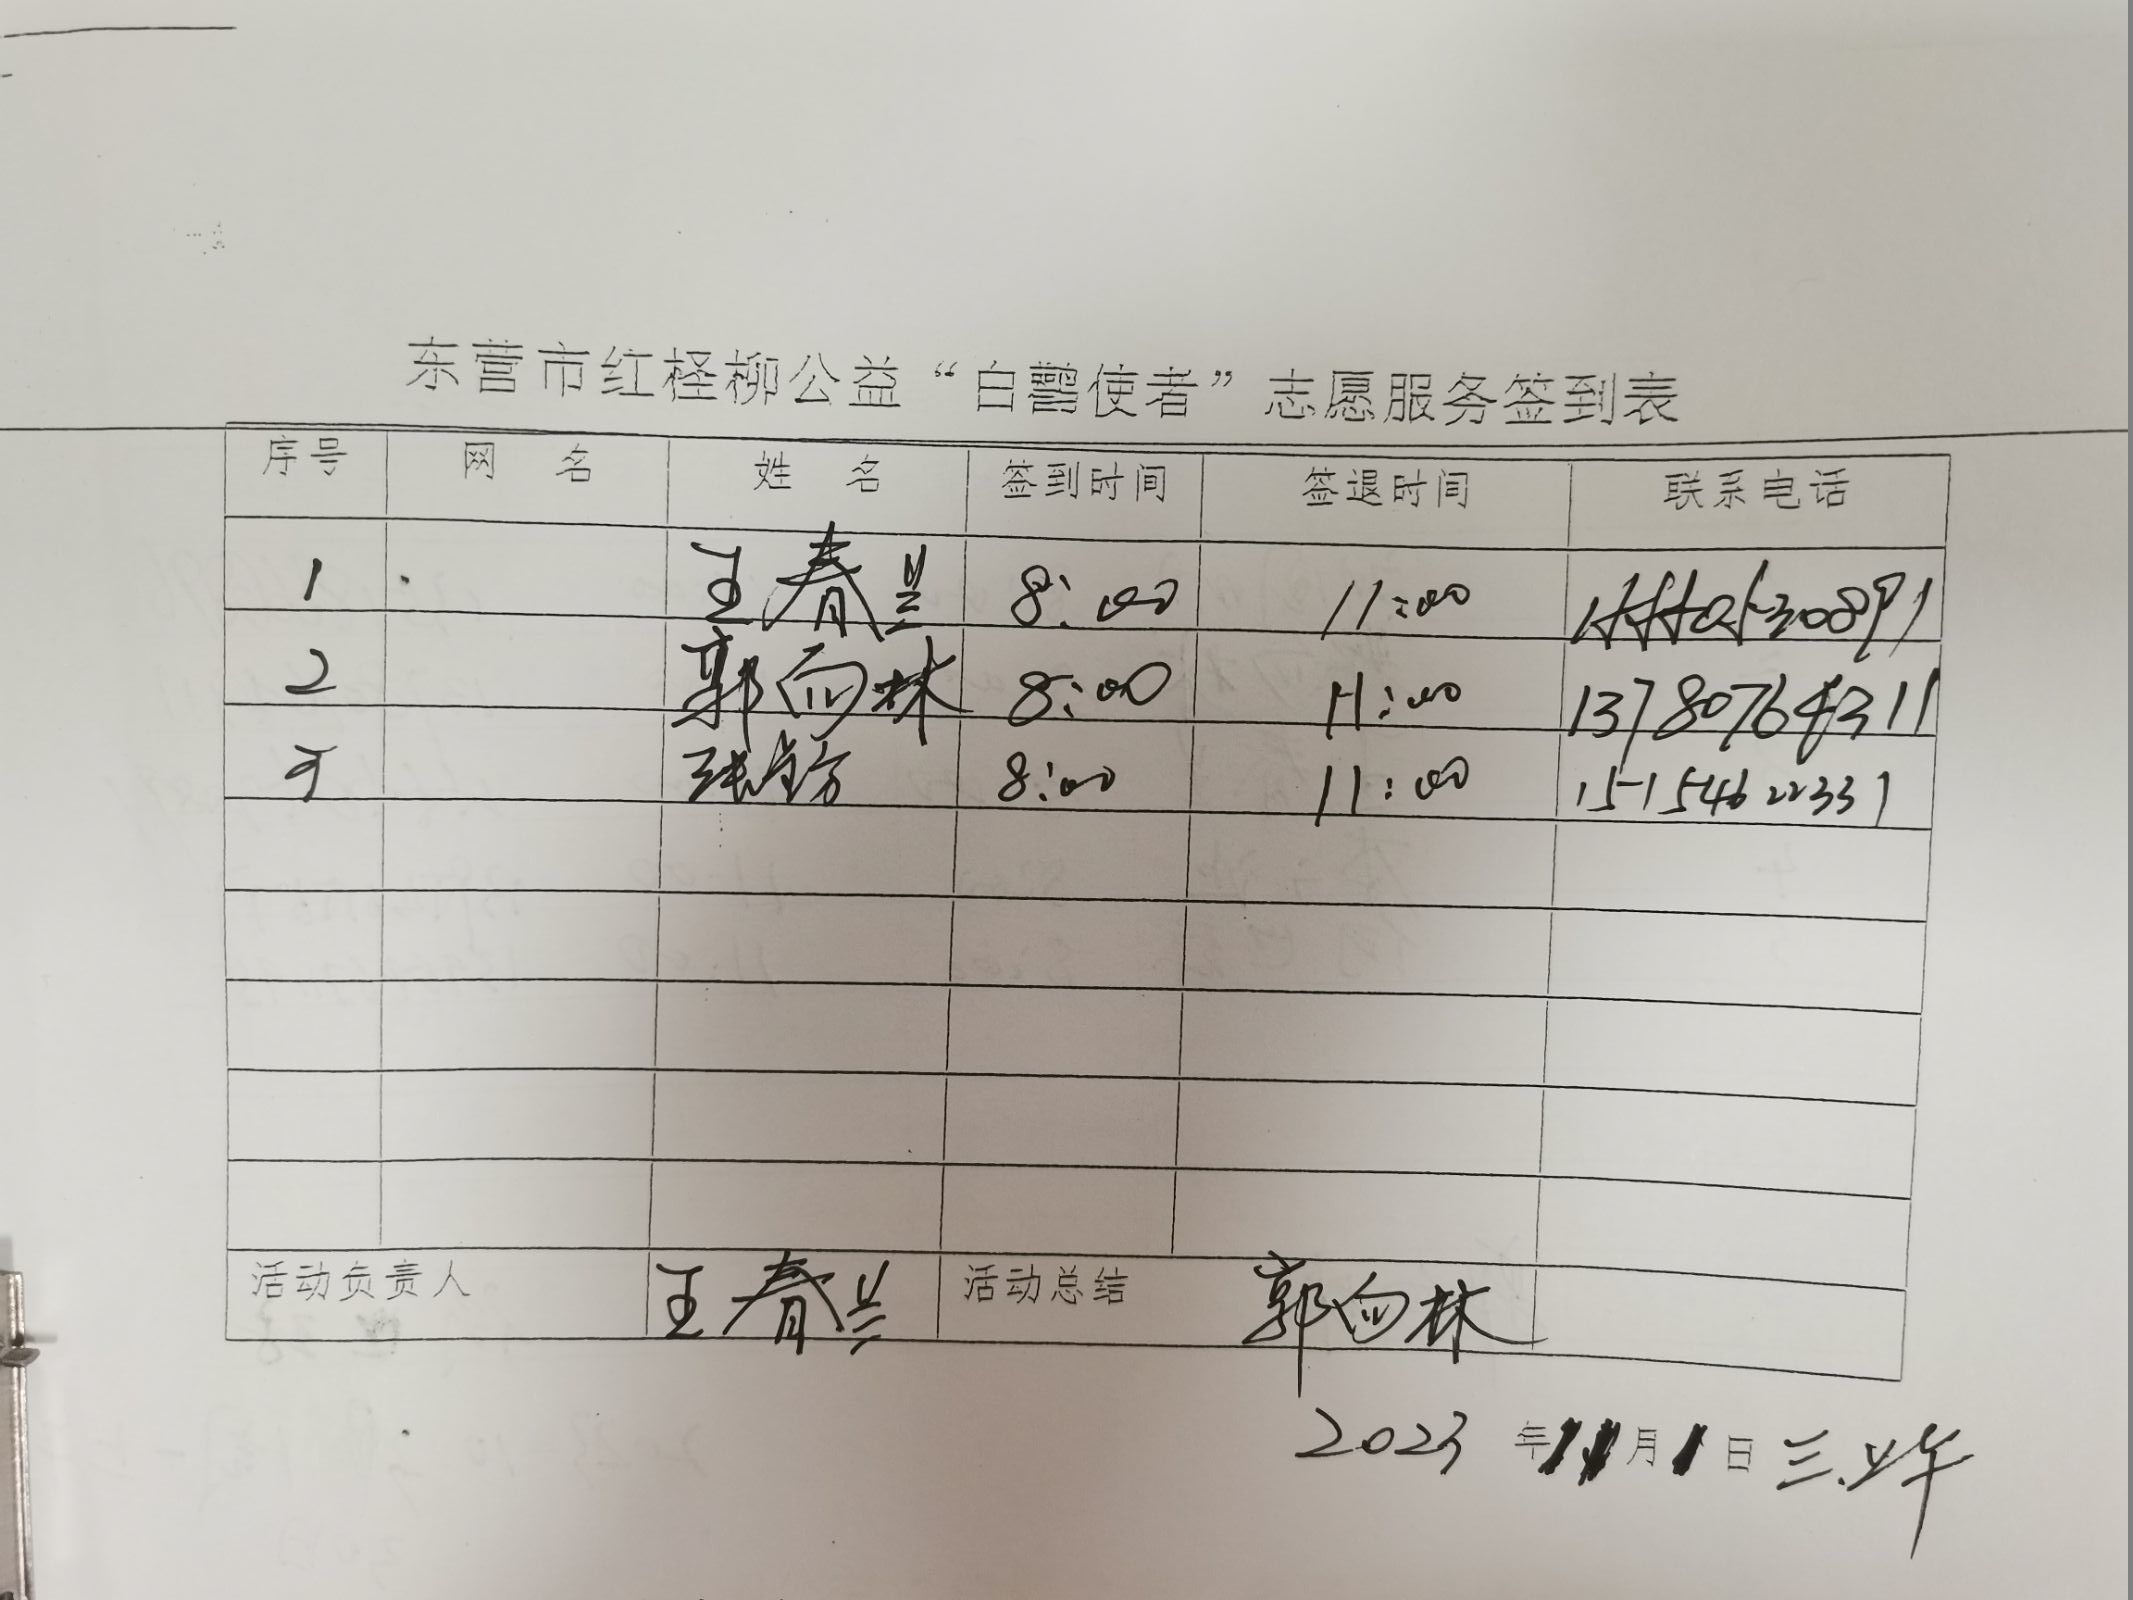 东营市红柽柳公益“白鹭使者”志愿服务签到表
序号 网 名 姓 名 签到时间 签退时间 联系电话
1 王春兰 8:00 11:00
2 郭向林 8:00 11:00 13780764311
3 8:00 11:00 15154622331
活动负责人 王春兰 活动总结 郭向林
2023 年 11 月 1 日 三.上午